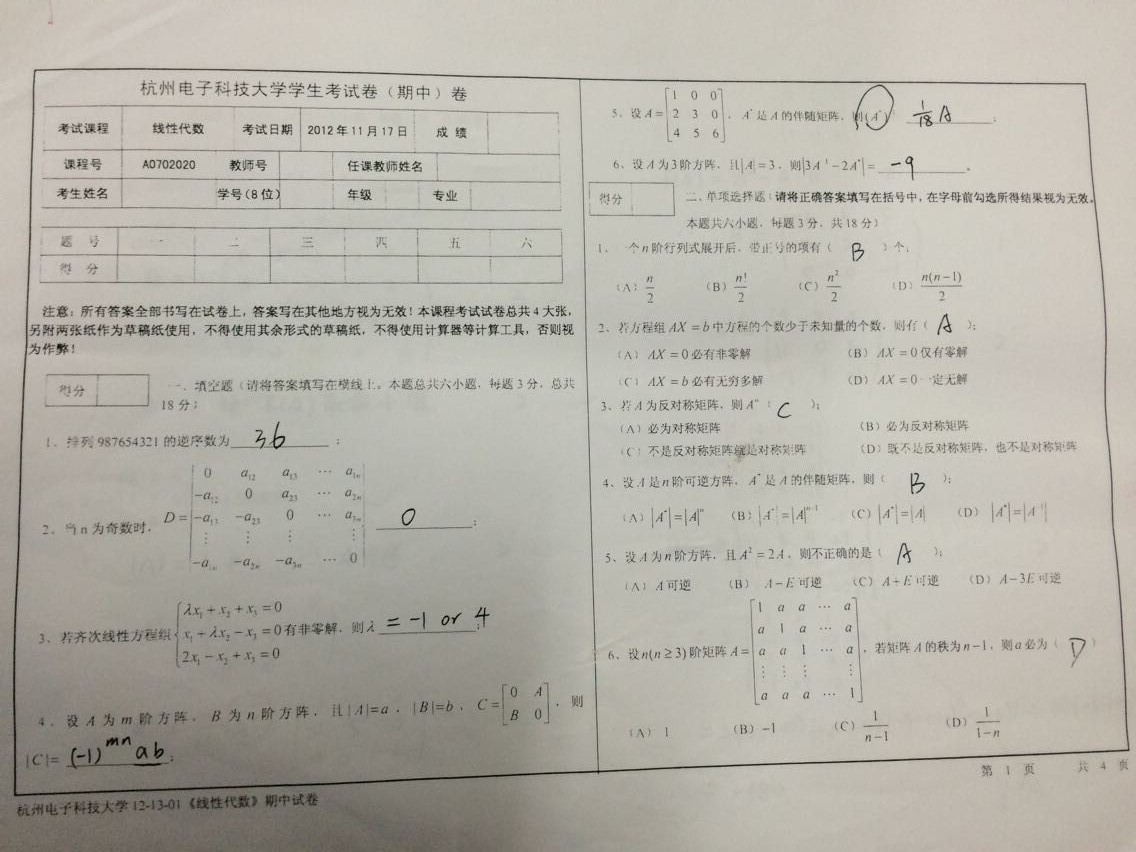 杭州电子科技大学学生考试卷（期中）卷
考试课程 线性代数 考试日期 2012年11月17日 成绩
课程号 A0702020 教师号 任课教师姓名
考生姓名 学号(8位) 年级 专业
题号 一 二 三 四 五 六
得分
注意：所有答案全部书写在试卷上，答案写在其他地方视为无效！本课程考试试卷总共4大张，
另附两张纸作为草稿纸使用，不得使用其余形式的草稿纸，不得使用计算器等计算工具，否则视
为作弊！
得分 一、填空题（请将答案填写在横线上。本题总共六小题，每题3分，总共
18分）
1、排列987654321的逆序数为 36 ；
2、当n为奇数时，D=
0 a₁₂ a₁₃ ⋯ a₁ₙ
-a₁₂ 0 a₂₃ ⋯ a₂ₙ
-a₁₃ -a₂₃ 0 ⋯ a₃ₙ
⋮ ⋮ ⋮ ⋮
-a₁ₙ -a₂ₙ -a₃ₙ ⋯ 0
0 ；
3、若齐次线性方程组
λx₁+x₂+x₃=0
x₁+λx₂-x₃=0
2x₁-x₂+x₃=0
有非零解，则λ = -1 or 4 ；
4、设A为m阶方阵，B为n阶方阵，且|A|=a，|B|=b，C=[0 A
B 0]，则
|C|= (-1)^mn ab ；
杭州电子科技大学12-13-01《线性代数》期中试卷
5、设A=
[1 0 0
2 3 0
4 5 6]
，A*是A的伴随矩阵，则(A*) 1/18 A ；
6、设A为3阶方阵，且|A|=3，则|3A⁻¹-2A*|= -9 。
得分 二、单项选择题（请将正确答案填写在括号中，在字母前勾选所得结果视为无效。
本题共六小题，每题3分，共18分）
1、一个n阶行列式展开后，带正号的项有（ B ）个；
（A）n/2 （B）n!/2 （C）n²/2 （D）n(n-1)/2
2、若方程组AX=b中方程的个数少于未知量的个数，则有（ A ）；
（A）AX=0必有非零解 （B）AX=0仅有零解
（C）AX=b必有无穷多解 （D）AX=0一定无解
3、若A为反对称矩阵，则Aⁿ（ C ）；
（A）必为对称矩阵 （B）必为反对称矩阵
（C）不是反对称矩阵就是对称矩阵 （D）既不是反对称矩阵，也不是对称矩阵
4、设A是n阶可逆方阵，A*是A的伴随矩阵，则（ B ）；
（A）|A*|=|A|ⁿ （B）|A*|=|A|ⁿ⁻¹ （C）|A*|=|A| （D）|A*|=|A⁻¹|
5、设A为n阶方阵，且A²=2A，则不正确的是（ A ）；
（A）A可逆 （B）A-E可逆 （C）A+E可逆 （D）A-3E可逆
6、设n(n≥3)阶矩阵A=
[1 a a ⋯ a
a 1 a ⋯ a
a a 1 ⋯ a
⋮ ⋮ ⋮ ⋮
a a a ⋯ 1]
，若矩阵A的秩为n-1，则a必为（ D ）
（A）1 （B）-1 （C）1/(n-1) （D）1/(1-n)
第 1 页 共 4 页